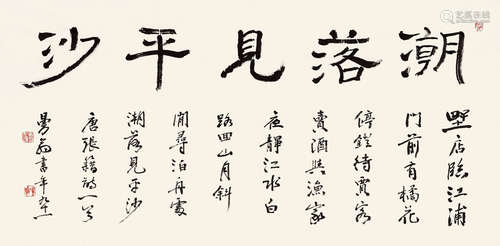 潮落見平沙
野店臨江浦
門前有橘花
停鐙待賈客
賣酒與漁家
夜靜江水白
路回山月斜
閒尋泊舟處
潮落見平沙
唐張籍詩一首
曼翁書年九一